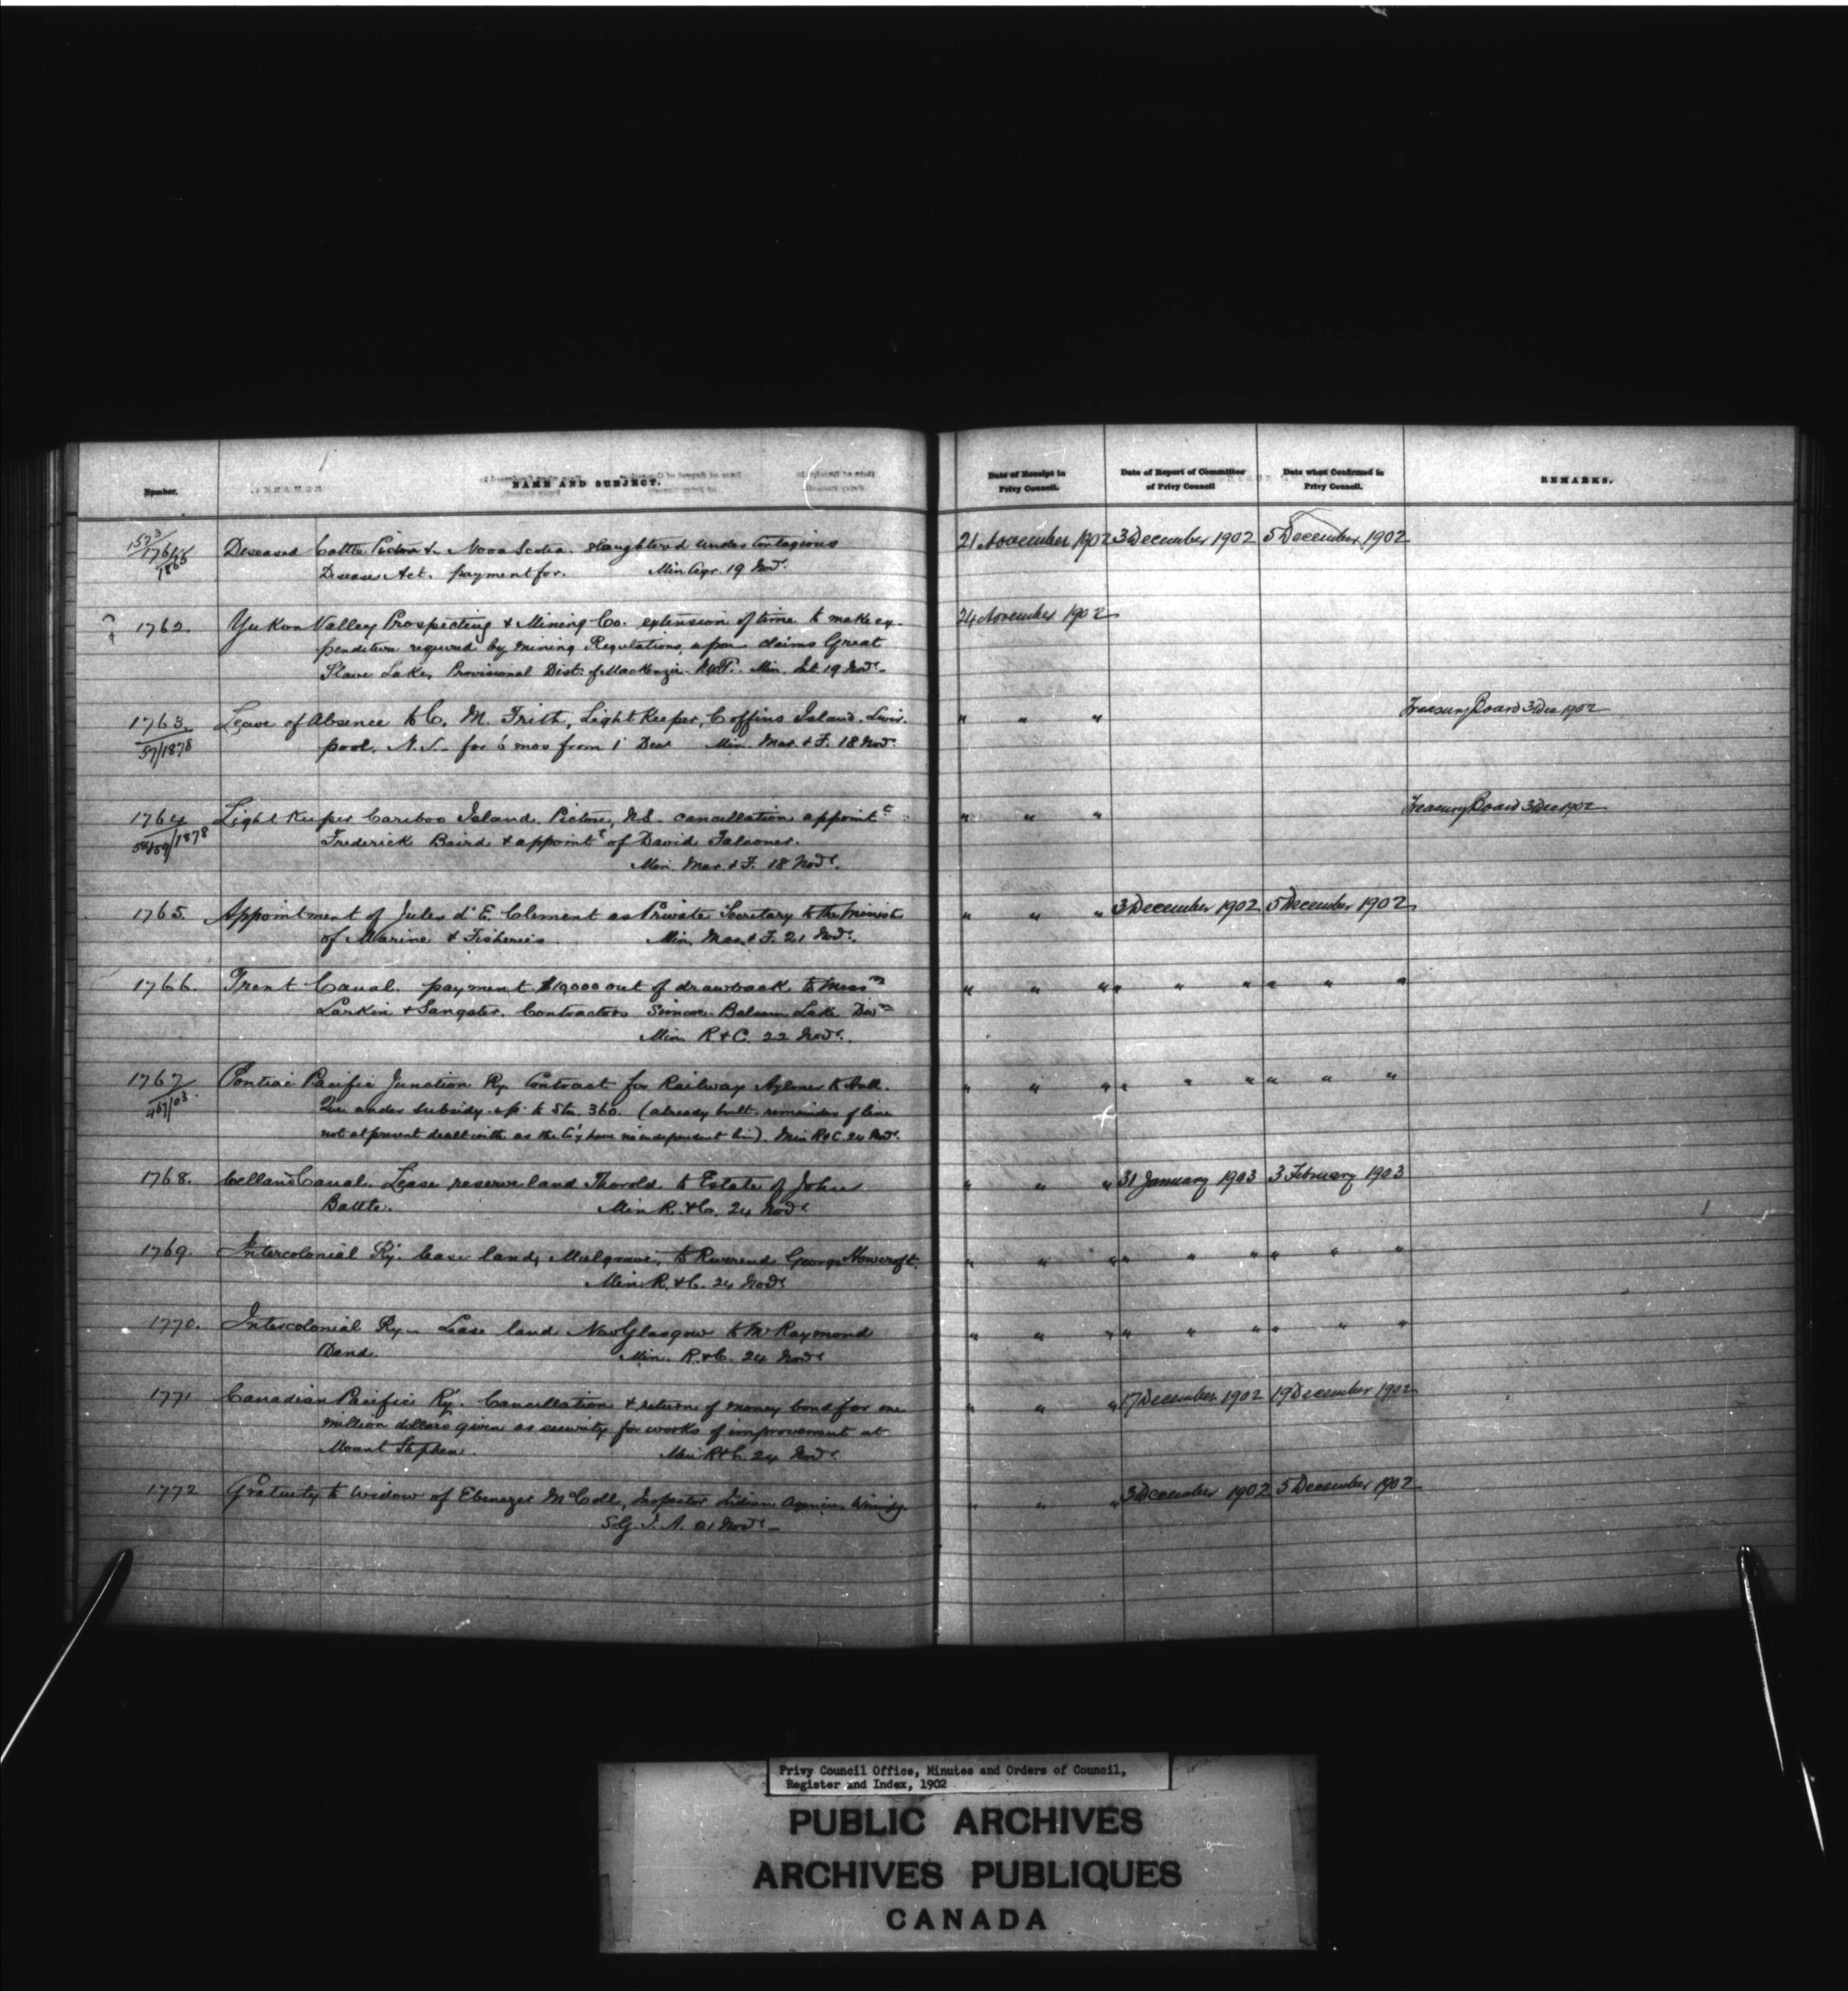 Number.
NAME AND SUBJECT.
Date of Receipt in Privy Council.
Date of Report of Committee of Privy Council
Date when Confirmed in Privy Council.
REMARKS.
1573/1761/1865 Diseased Cattle Pictou &c Nova Scotia. Slaughtered under Contagious 21 November 1902 3 December 1902 5 December 1902
Diseases Act. payment for. Min Agr. 19 Novr.
? 1762. Yukon Valley Prospecting & Mining Co. extension of time to make ex- 24 November 1902
penditure required by Mining Regulations, upon claims Great
Slave Lake, Provisional Dist. of MacKenzie. N.W.T. Min. Int 19 Novr
1763. Leave of Absence to C. M. Frith, Light Keeper, Coffins Island. Liver- " " " Treasury Board 3 Dec 1902
57/1878 pool. N.S. for 6 mos from 1 Decr Min. Mar. & F. 18 Novr.
1764 Light Keeper Cariboo Island. Pictou, N.S. cancellation appointt " " " Treasury Board 3 Dec 1902
58/59/1878 Frederick Baird & appointt of David Falconer.
Min. Mar. & F. 18 Novr.
1765. Appointment of Jules d'E. Clement as Private Secretary to the Minister " " " 3 December 1902 5 December 1902
of Marine & Fisheries. Min. Mar. & F. 21 Novr.
1766. Trent Canal. payment $10,000 out of drawback to Messrs " " " " " " " " "
Larkin & Sangster. Contractors Simcoe-Balsam Lake Divn
Min R & C. 22 Novr.
1767 Pontiac Pacific Junction Ry. Contract for Railway Aylmer to Hull. " " " " " " " " "
467/03. Que under subsidy up to Stn. 360. (already built. remainder of line
not at present dealt with as the Coy have no independent line). Min R & C. 24 Novr.
1768. Welland Canal. Lease reserve land Thorold to Estate of John " " " 31 January 1903 3 February 1903
Battle. Min R. & C. 24 Novr
1769. Intercolonial Ry. lease land, Mulgrave, to Reverend George Howcroft. " " " " " " " " "
Min R. & C. 24 Novr
1770. Intercolonial Ry. Lease land New Glasgow to Mr Raymond " " " " " " " " "
Dand. Min. R. & C. 24 Novr
1771 Canadian Pacific Ry. Cancellation & return of money bond for one " " " 17 December 1902 19 December 1902
million dollars given as security for works of improvement at
Mount Stephen. Min R & C. 24 Novr
1772 Gratuity to widow of Ebenezer McColl, Inspector Indian Agencies Winnipg. " " " 3 December 1902 5 December 1902
S.G. I. A. 21 Novr
Privy Council Office, Minutes and Orders of Council,
Register and Index, 1902
PUBLIC ARCHIVES
ARCHIVES PUBLIQUES
CANADA